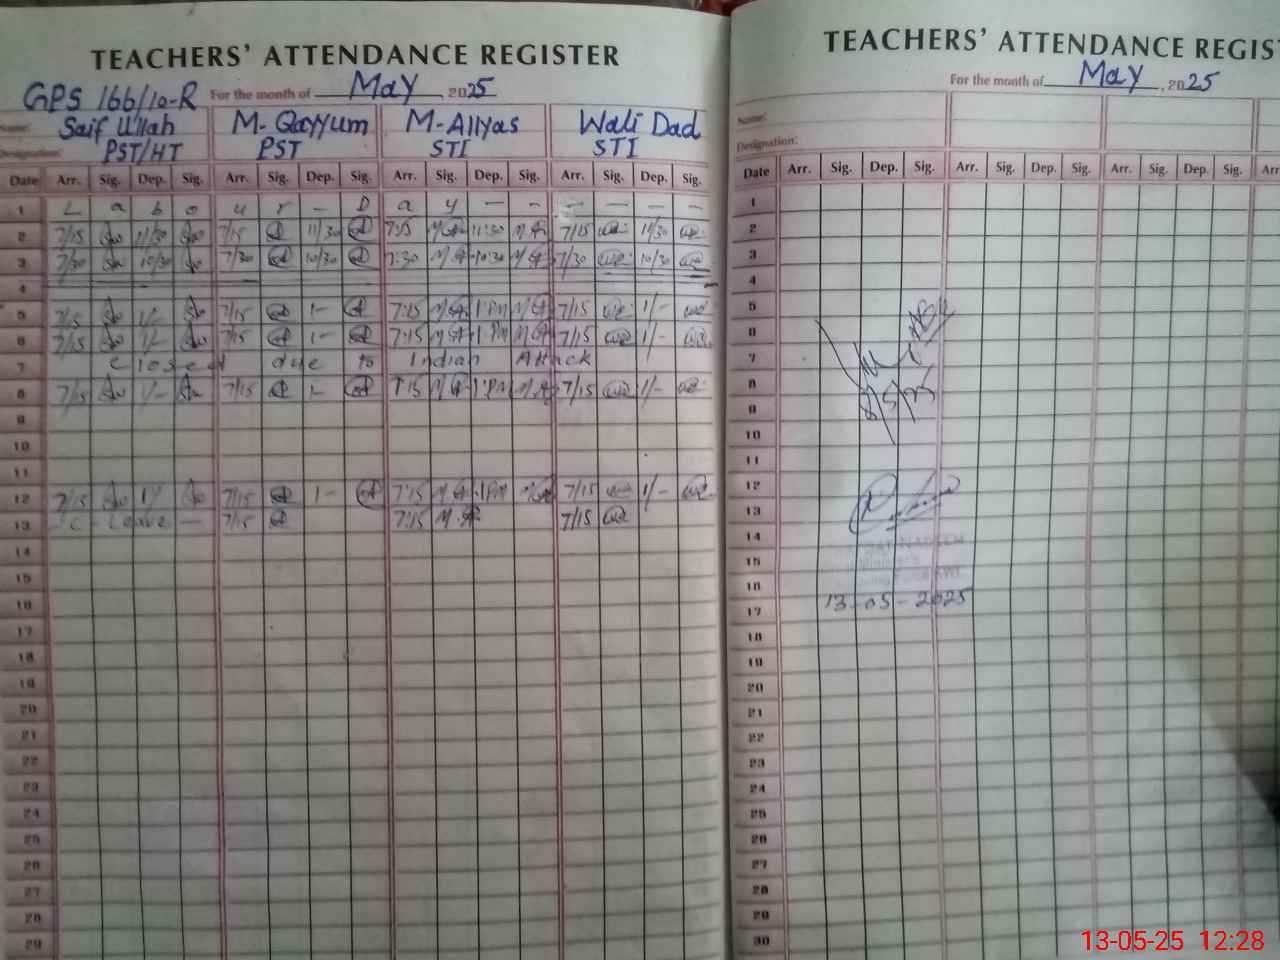 TEACHERS' ATTENDANCE REGISTER
GPS 166/10-R For the month of May, 2025
Name: Saif Ullah M-Qayyum M-Allyas Wali Dad
Designation: PST/HT PST STI STI
Date Arr. Sig. Dep. Sig. Arr. Sig. Dep. Sig. Arr. Sig. Dep. Sig. Arr. Sig. Dep. Sig.
1 L a b o u r - D a y - - - - - -
2 7/15 11/30 7/15 11/30 7:15 M.A 11:30 M.A 7/15 11/30
3 7/30 10/30 7/30 10/30 7:30 M.A 10:30 M.A 7/30 10/30
4
5 7/15 1/- 7/15 1- 7:15 M.A 1 PM M.A 7/15 1/-
6 7/15 1/- 7/15 1- 7:15 M.A 1 PM M.A 7/15 1/-
7 Closed due to Indian Attack
8 7/15 1/- 7/15 1- 7:15 M.A 1 PM M.A 7/15 1/-
9
10
11
12 7/15 1/- 7/15 1- 7:15 M.A 1 PM 7/15 1/-
13 C-Leave - 7/15 7:15 M.A 7/15
14
15
16
17
18
19
20
21
22
23
24
25
26
27
28
29
TEACHERS' ATTENDANCE REGIST
For the month of May, 2025
Name:
Designation:
Date Arr. Sig. Dep. Sig. Arr. Sig. Dep. Sig. Arr. Sig. Dep. Sig. Arr
1
2
3
4
5
6
7
8
9
10
11
12
13
14
15
16
13-05-2025
17
18
19
20
21
22
23
24
25
26
27
28
29
30
13-05-25 12:28